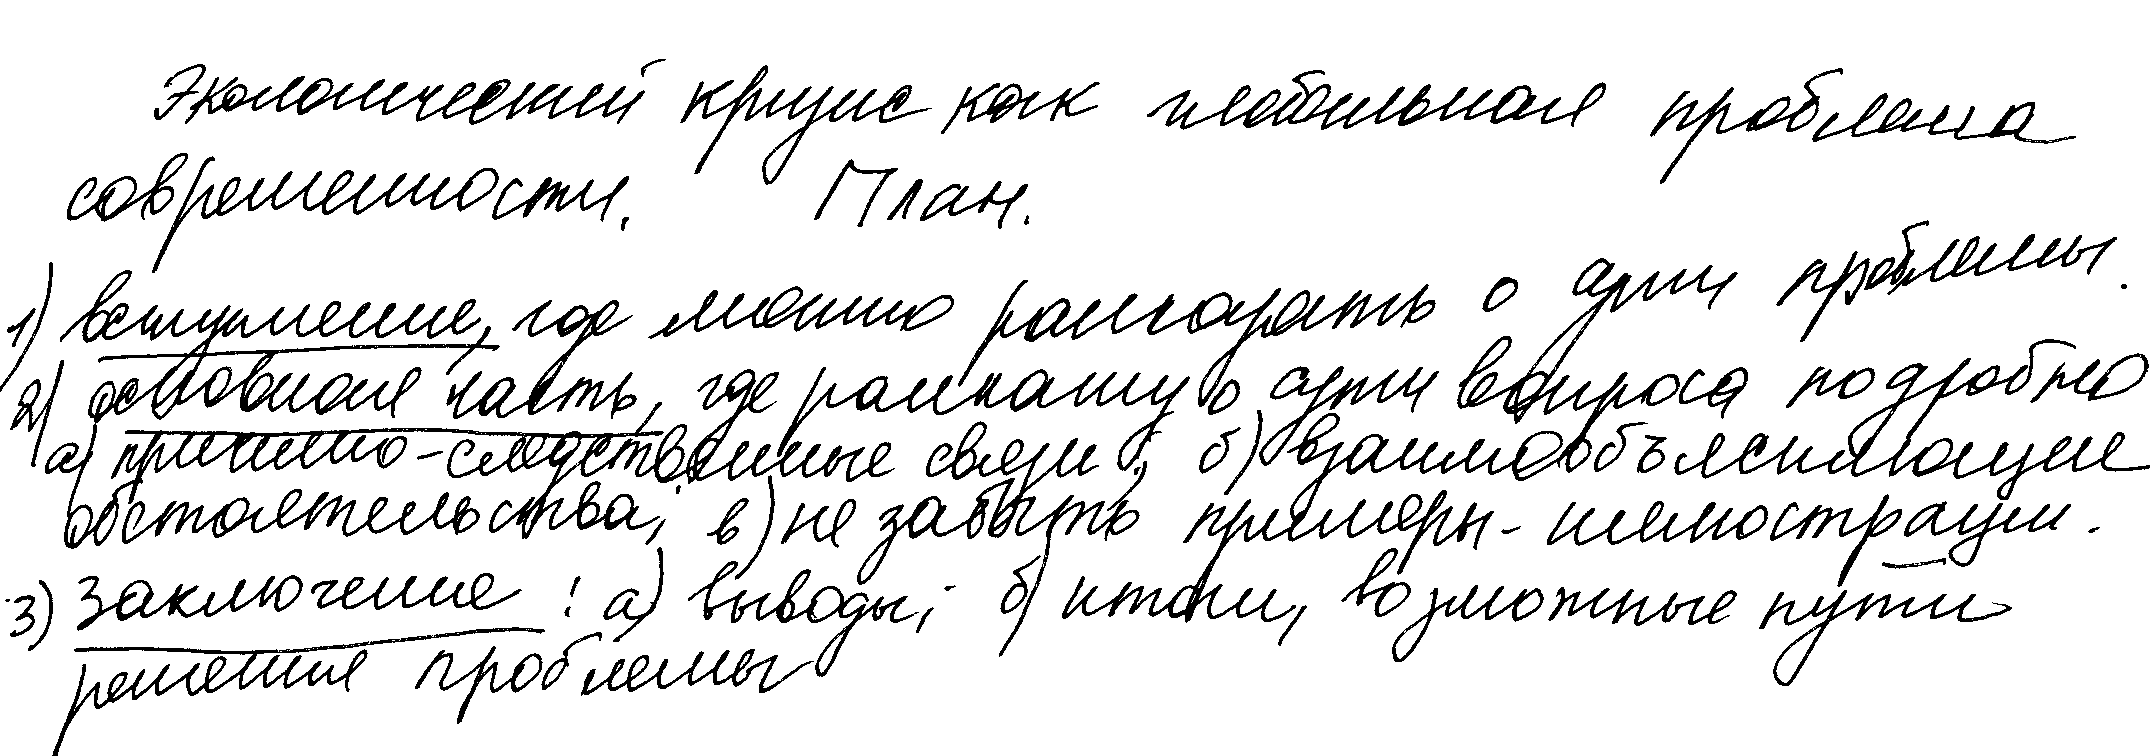 Экологический кризис как глобальная проблема
современности. План.
1) вступление, где можно рассказать о сути проблемы.
2) основная часть, где расскажу о сути вопроса подробно
а) причинно-следственные связи; б) взаимообъясняющие
обстоятельства; в) не забыть примеры-иллюстрации.
3) заключение: а) выводы; б) итоги, возможные пути
решения проблемы